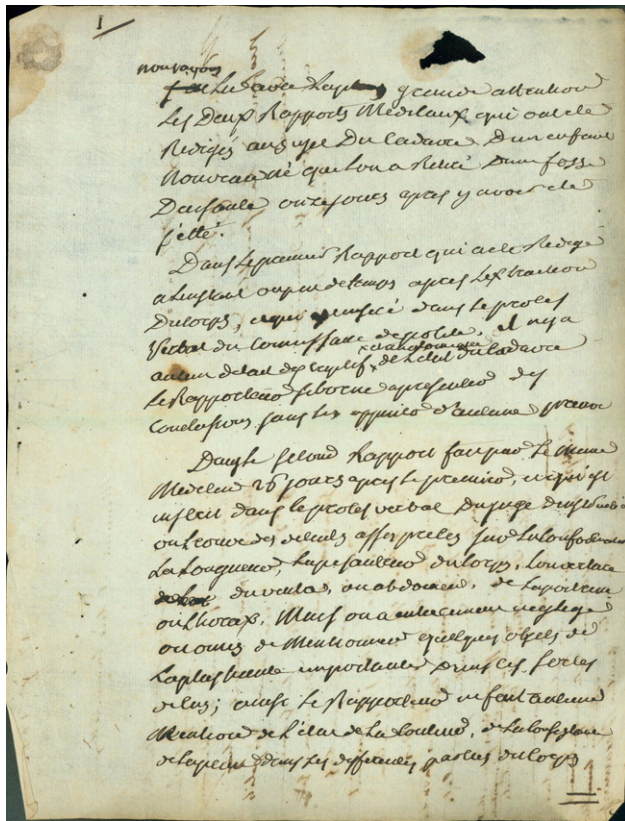 1
nous avons
lu avec la plus grande attention
Les Deux Rapports Medicaux qui ont ete
Rediges au sujet Du Cadavre D'un enfant
Nouveau né que l'on a Retiré D'une fosse
D'aisance onze jours apres y avoir ete
jetté.
Dans le premier Rapport qui a ete Redigé
a l'instant ou peu de temps apres l'extraction
Du Corps, et qui est inseré dans le proces
Verbal du Commissaire de police, il n'y a
aucun detail descriptif de l'etat du Cadavre
Le Rapporteur se borne a presenter des
Conclusions sans les appuier d'aucune preuve
Dans le second Rapport fait par le meme
Medecin 26 jours apres le premier, et qui est
inseré dans le proces verbal du juge d'instruction
on trouve des details assez precis sur
La Longueur, la pesanteur du Corps, l'ouverture
du ventre, ou abdomen, de la poitrine
ou thorax, Mais on a entierement negligé
ou omis de Mentionner quelques objets de
la plus haute importance Dans ces sortes
de cas; ainsi Le Rapporteur ne fait aucune
Mention de l'etat de La Couleur, de la Consistance
de la peau dans les differentes parties du Corps